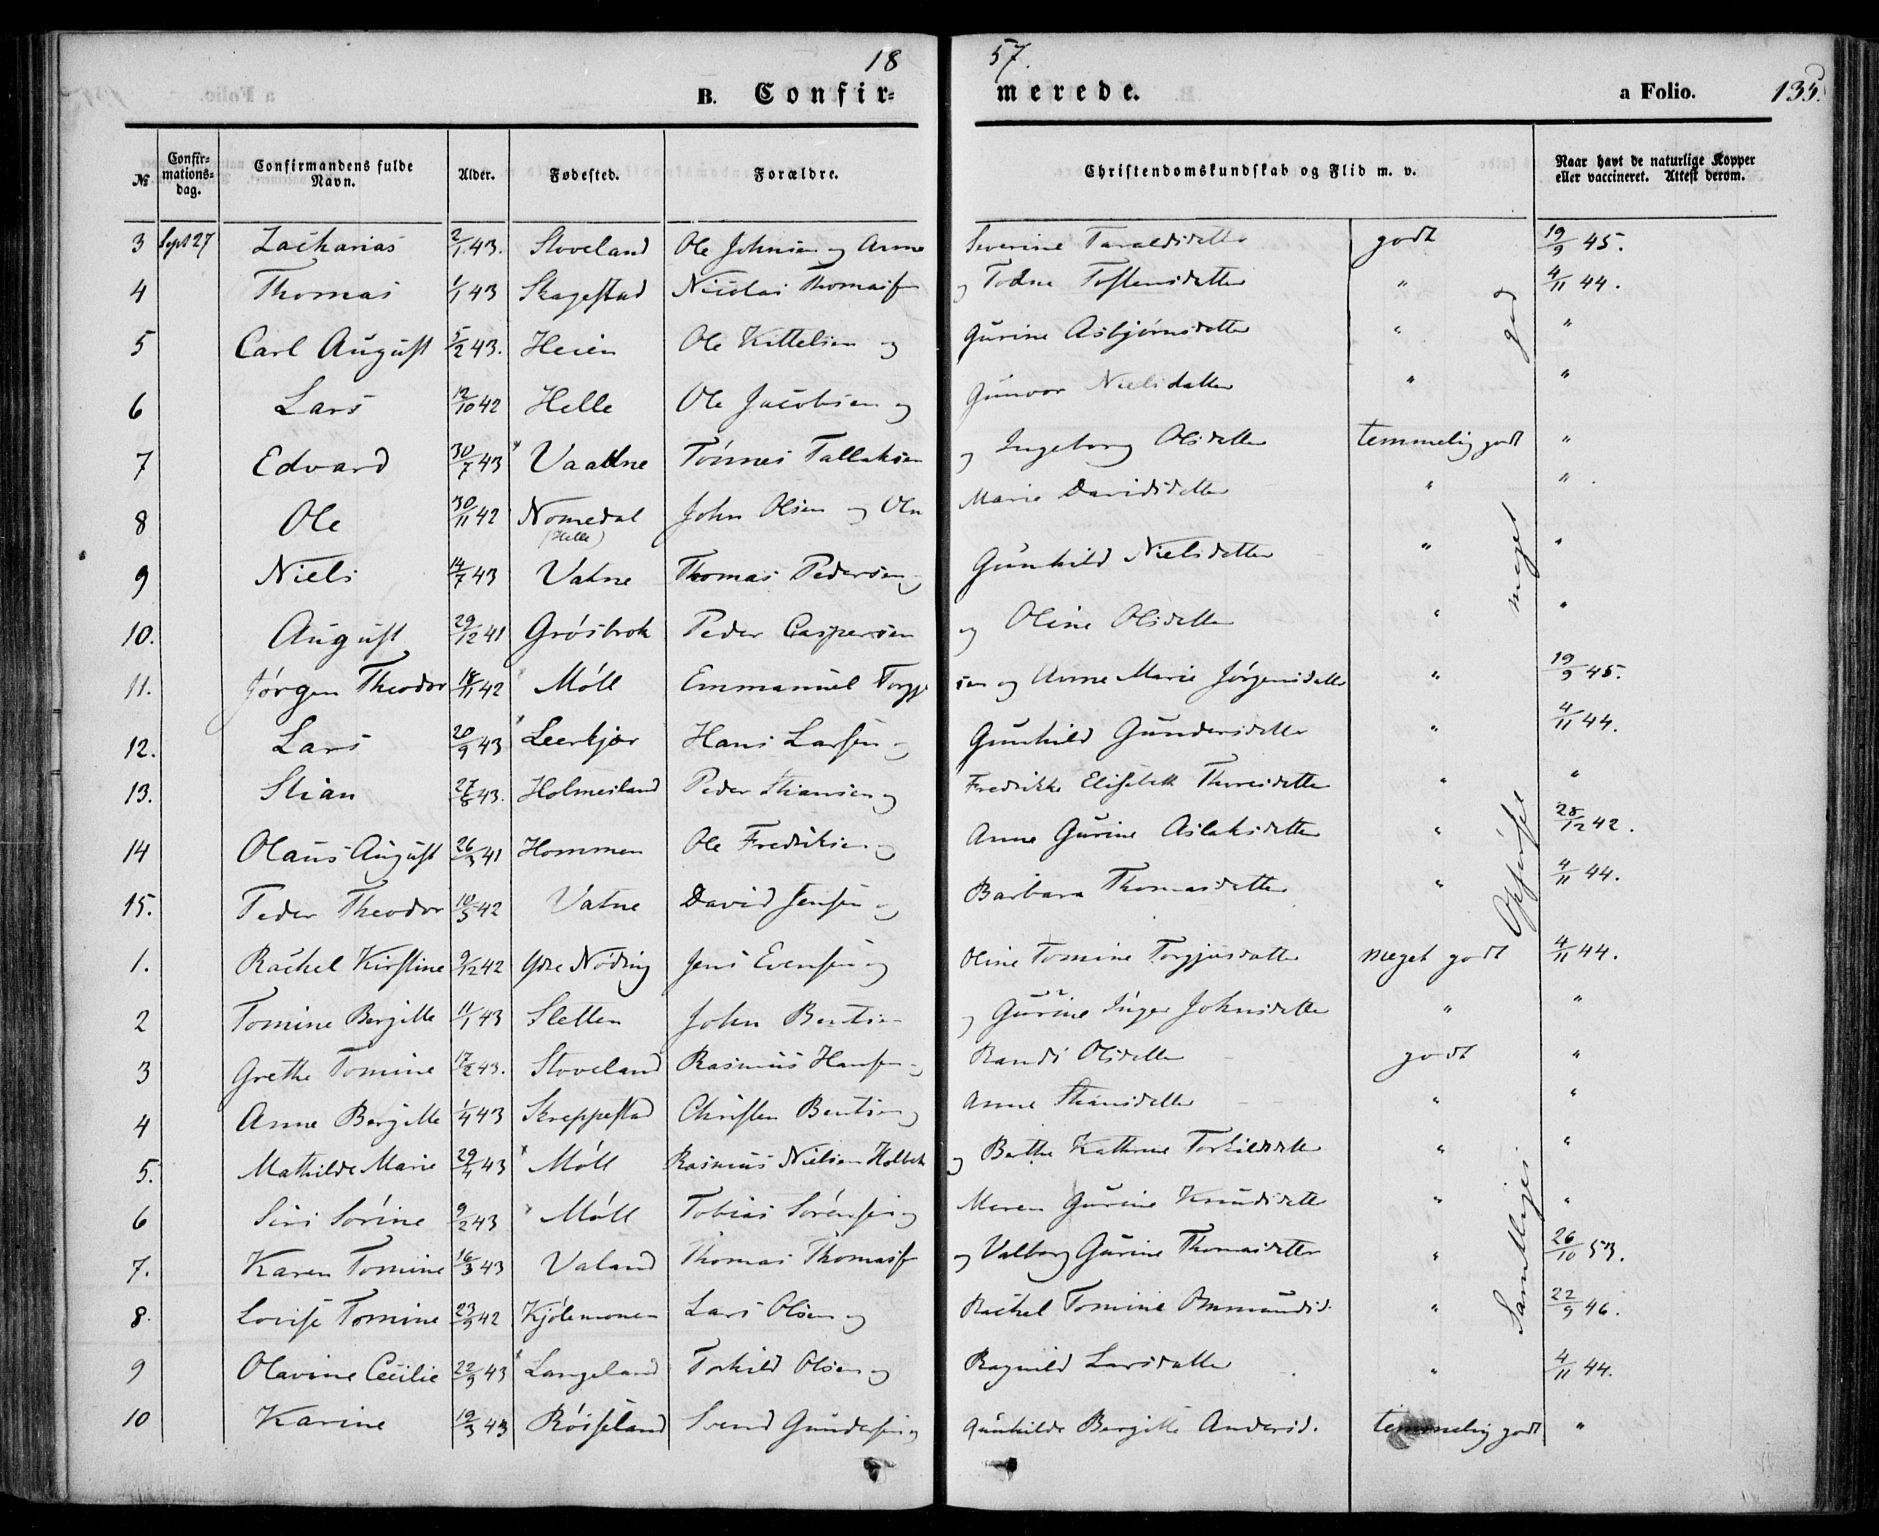 1857.
B. Confirmerede. a Folio. 135.
№ Confirmationsdag. Confirmandens fulde Navn. Alder. Fødested. Forældre. Christendomskundskab og Flid m. v. Naar havt de naturlige Kopper eller vaccineret. Attest derom.
3 Sept 27 Zacharias 2/1 43. Stoveland Ole Johnsen og Anne Severine Taraldsdatter godt 19/9 45.
4 Thomas 1/1 43 Skagestad Nicolai Thomass og Todne Tostensdatter " 4/11 44.
5 Carl August 5/2 43. Heien Ole Kittelsen og Gurine Asbjørnsdatter " "
6 Lars 12/10 42 Helle Ole Jacobsen og Gunvor Nielsdatter " "
7 Edvard 30/7 43 Vaatne Tønnes Tallaksen og Ingeborg Olsdatter temmelig godt "
8 Ole 30/11 42 Nomedal (Helle) John Olsen og Marie Davidsdatter " "
9 Niels 14/7 43 Vatne Thomas Pedersen og Gunhild Nielsdatter " "
10. August 29/12 41 Grøsbrok Peder Caspersen og Oline Olsdatter " "
11. Jørgen Theodor 18/11 42 Møll Emmanuel Torgjersen og Anne Marie Jørgensdatter " 19/9 45.
12. Lars 20/9 43 Leerkjær Hans Larsen og Gunhild Gundersdatter " 4/11 44.
13. Stian 27/8 43. Holmesland Peder Stiansen og Fredrikke Elisabeth Thoresdatter " "
14 Olaus August 26/3 41 Hommen Ole Fredriksen og Anne Gurine Aslaksdatter " 28/12 42.
15. Peder Theodor 10/5 42 Vatne David Jensen og Barbara Thomasdatter " 4/11 44.
1. Rachel Kirstine 9/12 42 Ydre Nøding Jens Evensen og Oline Tomine Torgjusdatter meget godt 4/11 44.
2 Tomine Bergitte 11/1 43 Sletten John Bentsen og Gurine Inger Johnsdatter " "
3 Grethe Tomine 17/2 43. Stoveland Rasmus Hansen og Randi Olsdatter godt "
4 Anne Bergitte 1/4 43 Skeppestad Christen Bentsen og Anne Stiansdatter " "
5. Mathilde Marie 29/4 43 Møll Rasmus Nielsen Holbek og Berthe Kathrine Torkildsdatter " "
6 Siri Sørine 9/2 43 Møll Tobias Sørensen og Maren Gurine Knudsdatter " "
7. Karen Tomine 16/3 43 Valand Thomas Thomass og Valborg Gurine Thomasdatter " 26/10 53.
8. Lovise Tomine 23/9 42 Kjølemonen Lars Olsen og Rachel Tomine Ommundsd. " 22/9 46.
9 Olavine Cecilie 22/9 43 Langeland Torkild Olsen og Ragnild Larsdatter " 4/11 44.
10 Karine 19/3 43 Røisseland Svend Gundersen og Gunhilde Bergitte Andersd. temmelig godt "
Samtliges Opførsel meget god